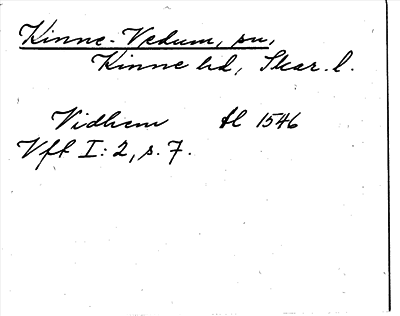 Kinne-Vedum, sn,
Kinne hd, Skar. l.
Vidhem tl 1546
Vft I: 2, s. 7.